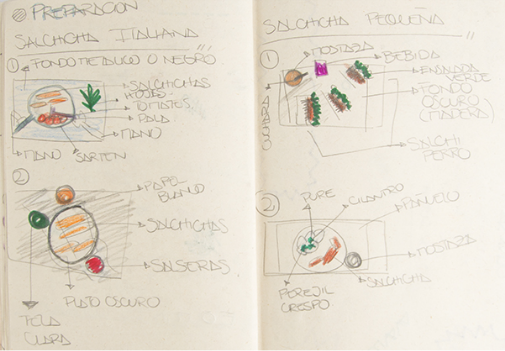 PREPARACION
SALCHICHA ITALIANA
1 FONDO METALICO O NEGRO
SALCHICHAS
HOJAS
TOMATES
PALA
MANO
MANO
SARTEN
2
PAPEL
BLANCO
SALCHICHAS
SALSERAS
PLATO OSCURO
TELA
CLARA
SALCHICHA PEQUEÑA
1
MOSTAZA
BEBIDA
ENSALADA
VERDE
FONDO
OSCURO
(MADERA)
SALCHI
PERRO
2
PURE
CILANTRO
PAÑUELO
MOSTAZA
SALCHICHA
PEREJIL
CRESPO